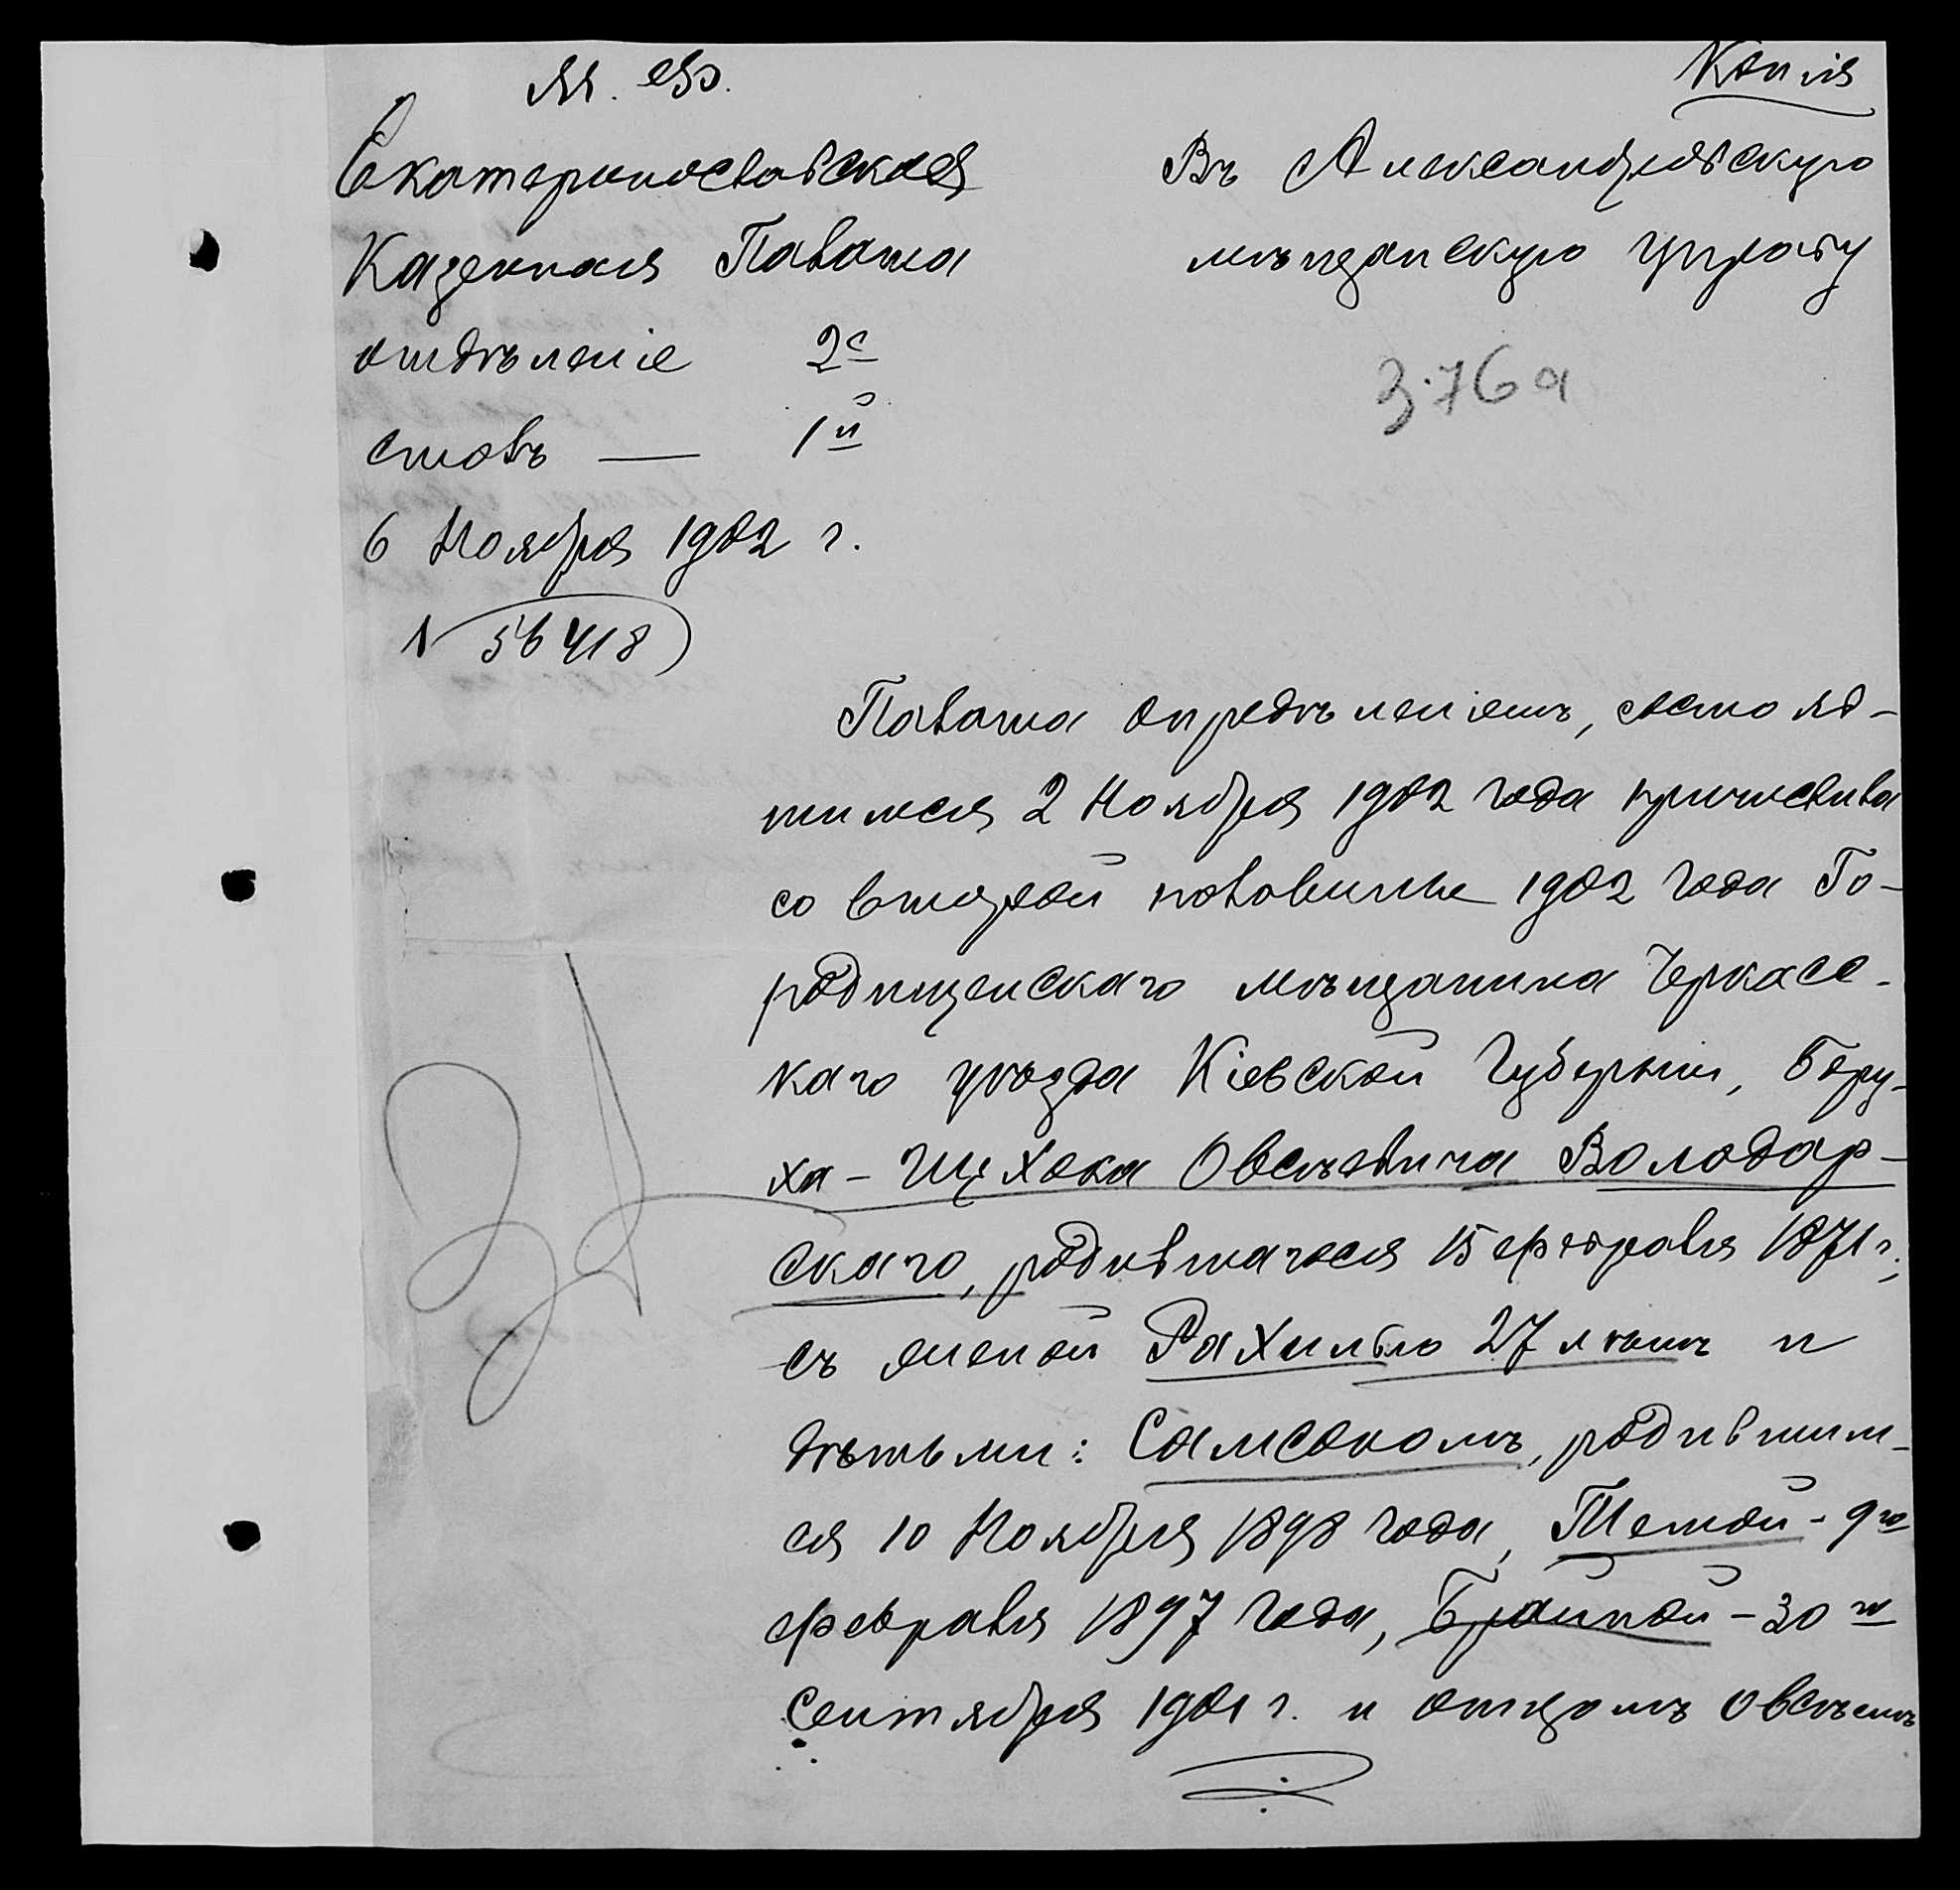 М. Ф.
Копія
Екатеринославская
Казенная Палата
отдѣленіе 2е
столъ — 1й
6 Ноября 1902 г.
№ 56418
Въ Александровскую
мѣщанскую управу
3.76а
Палата опредѣленіемъ, состояв-
шимся 2 Ноября 1902 года причислила
со второй половины 1902 года Го-
родищенскаго мѣщанина Черкасс-
каго уѣзда Кіевской Губерніи, Беру-
ха-Ицхока Овсѣевича Володар-
скаго, родившагося 15 февраля 1871 г.,
съ женой Рахилью 27 лѣтъ и
дѣтьми: Самсономъ, родившим-
ся 10 Ноября 1898 года, Темой - 9го
февраля 1897 года, Брайной - 30го
Сентября 1901 г. и отцомъ Овсѣемъ